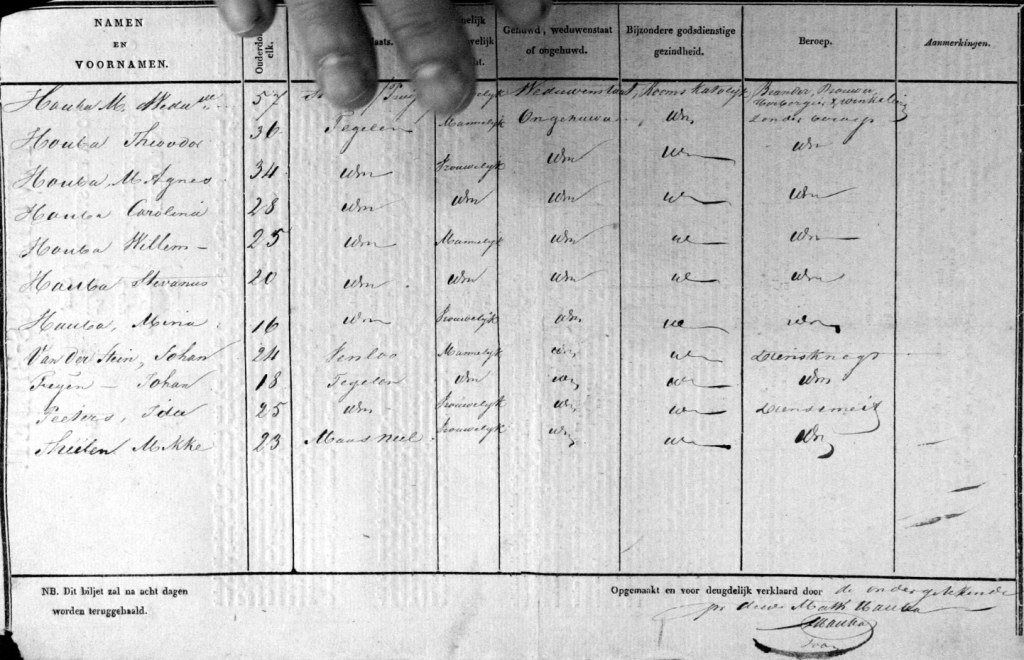 NAMEN EN VOORNAMEN. Ouderdom elk. laats. nelijk welijk ht. Gehuwd, weduwenstaat of ongehuwd. Bijzondere godsdienstige gezindheid. Beroep. Aanmerkingen.
Houba M. Wedu 57 Weduwenstaat, Rooms Katolyk Brander, Brouwer, & winkeling
Houba Theodor 36 Tegelen Mannelyk Ongehuwd zonder beroep
Houba M. Agnes 34 Idm Vrouwelyk Idm Idm
Houba Carolina 28 Idm Idm Idm Idm
Houba Willem 25 Idm Mannelyk Idm Idm
Houba Stevanus 20 Idm Idm Idm Idm
Houba, Miria 16 Idm Vrouwelijk Idm Idm
Van der Stein, Johan 24 Venloo Mannelyk Dienstknegt
Johan 18 Tegelen Idm Idm
Peeters, Ida 25 Idm Vrouwelijk Dienstmeit
Thielen Mikke 23 Maasneel Vrouwelyk Idm
NB. Dit biljet zal na acht dagen
worden teruggehaald.
Opgemaakt en voor deugdelijk verklaard door de ondergetekende
Math Hauba
Hauba